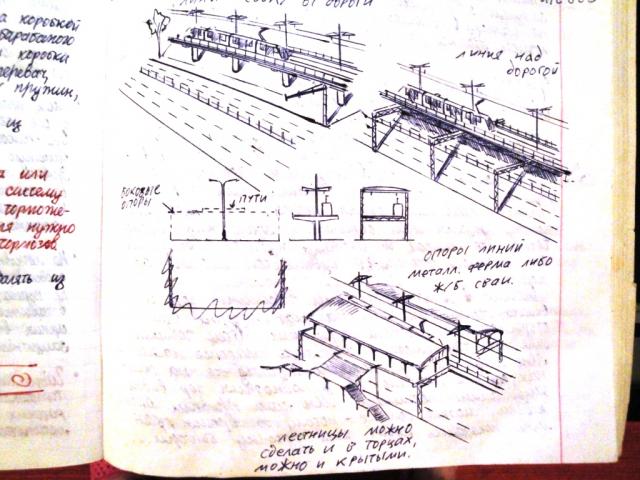 а коробкой
барабаного
коробка
перевач,
пружин,
из
а или
систему
торможе-
ия нужно
тормозов
алять из
линия сбоку от дороги
линия над
дорогой
боковые
опоры
пути
опоры линий
металл. ферма либо
ж/б. сваи.
лестницы можно
сделать и в торцах,
можно и крытыми.